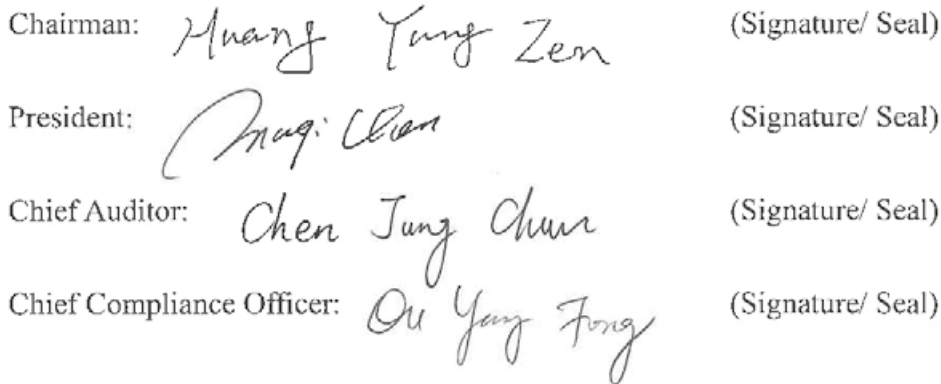 Chairman: Huang Yung Zen (Signature/ Seal)
President: Chen (Signature/ Seal)
Chief Auditor: Chen Jung Chun (Signature/ Seal)
Chief Compliance Officer: Ou Yang Fong (Signature/ Seal)